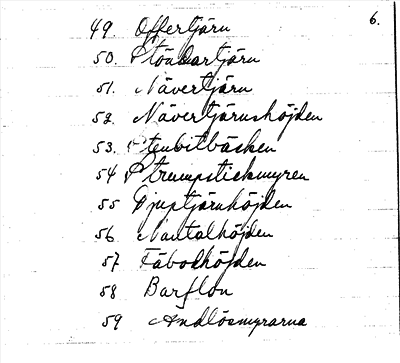 6.
49 Offertjärn
50. Stöndartjärn
51. Nävertjärn
52. Nävertjärnshöjden
53. Stenbitbäcken
54 Strumpstickmyren
55 Djuptjärnhöjden
56 Nautalhöjden
57 Fäbodhöjden
58 Barflon
59 Andlösmyrarna